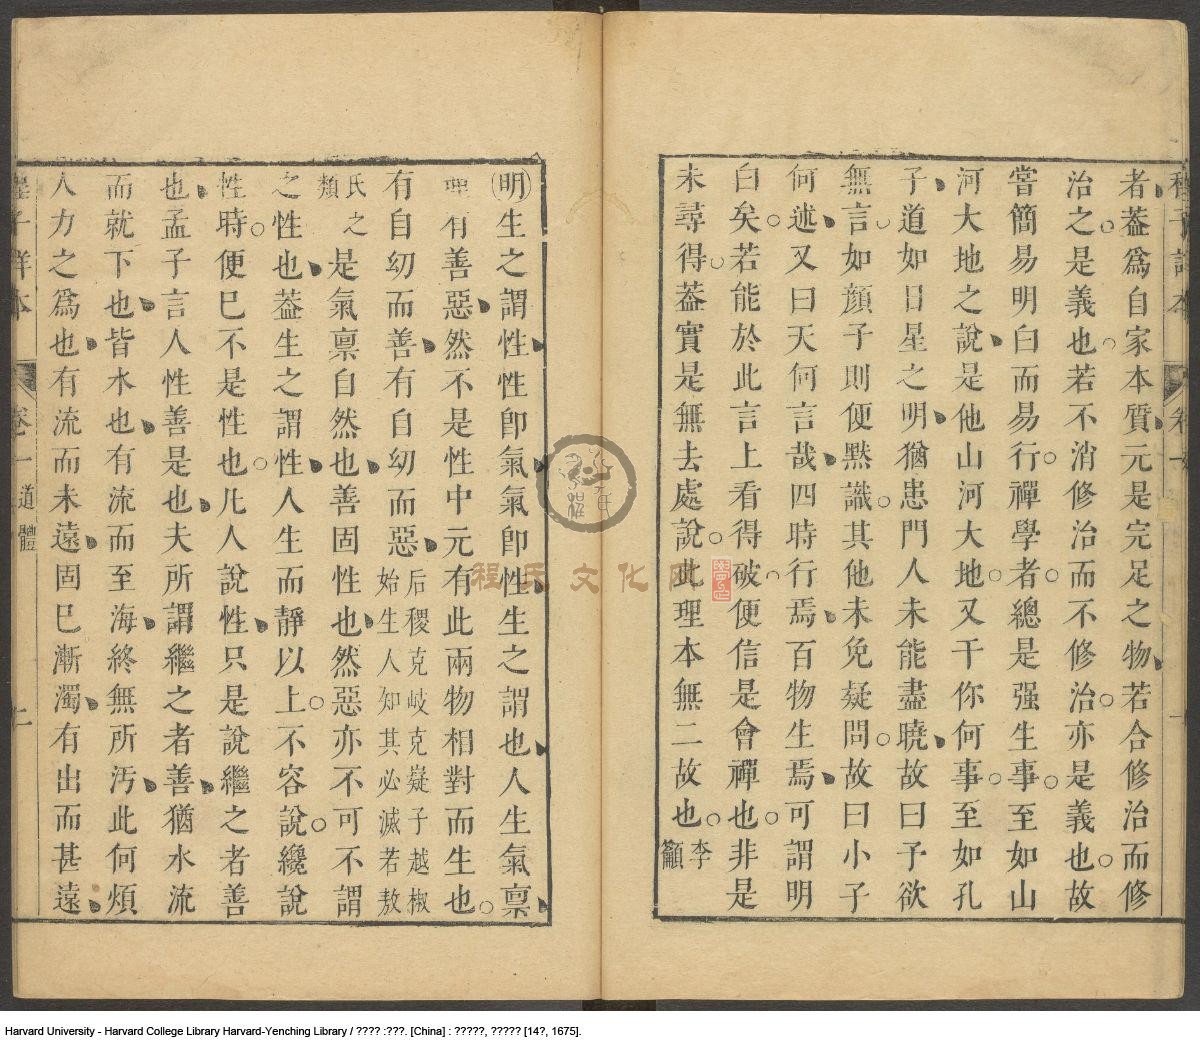 者葢爲自家本質元是完足之物若合修治而修
治之是義也若不消修治而不修治亦是義也故
嘗簡易明白而易行禪學者總是强生事至如山
河大地之說是他山河大地又干你何事至如孔
子道如日星之明猶患門人未能盡曉故曰予欲
無言如顔子則便黙識其他未免疑問故曰小子
何述又曰天何言哉四時行焉百物生焉可謂明
白矣若能於此言上看得破便信是會禪也非是
未尋得葢實是無去處說此理本無二故也
李
籲
明生之謂性性卽氣氣卽性生之謂也人生氣禀
理有善惡然不是性中元有此兩物相對而生也
有自幼而善有自幼而惡
后稷克岐克嶷子越椒
始生人知其必滅若敖
氏之
類
是氣禀自然也善固性也然惡亦不可不謂
之性也葢生之謂性人生而靜以上不容說纔說
性時便已不是性也凡人說性只是說繼之者善
也孟子言人性善是也夫所謂繼之者善猶水流
而就下也皆水也有流而至海終無所汚此何煩
人力之爲也有流而未遠固已漸濁有出而甚遠
卷一
道體
程氏文化网
Harvard University - Harvard College Library Harvard-Yenching Library / ???? :???. [China] : ?????, ????? [14?, 1675].